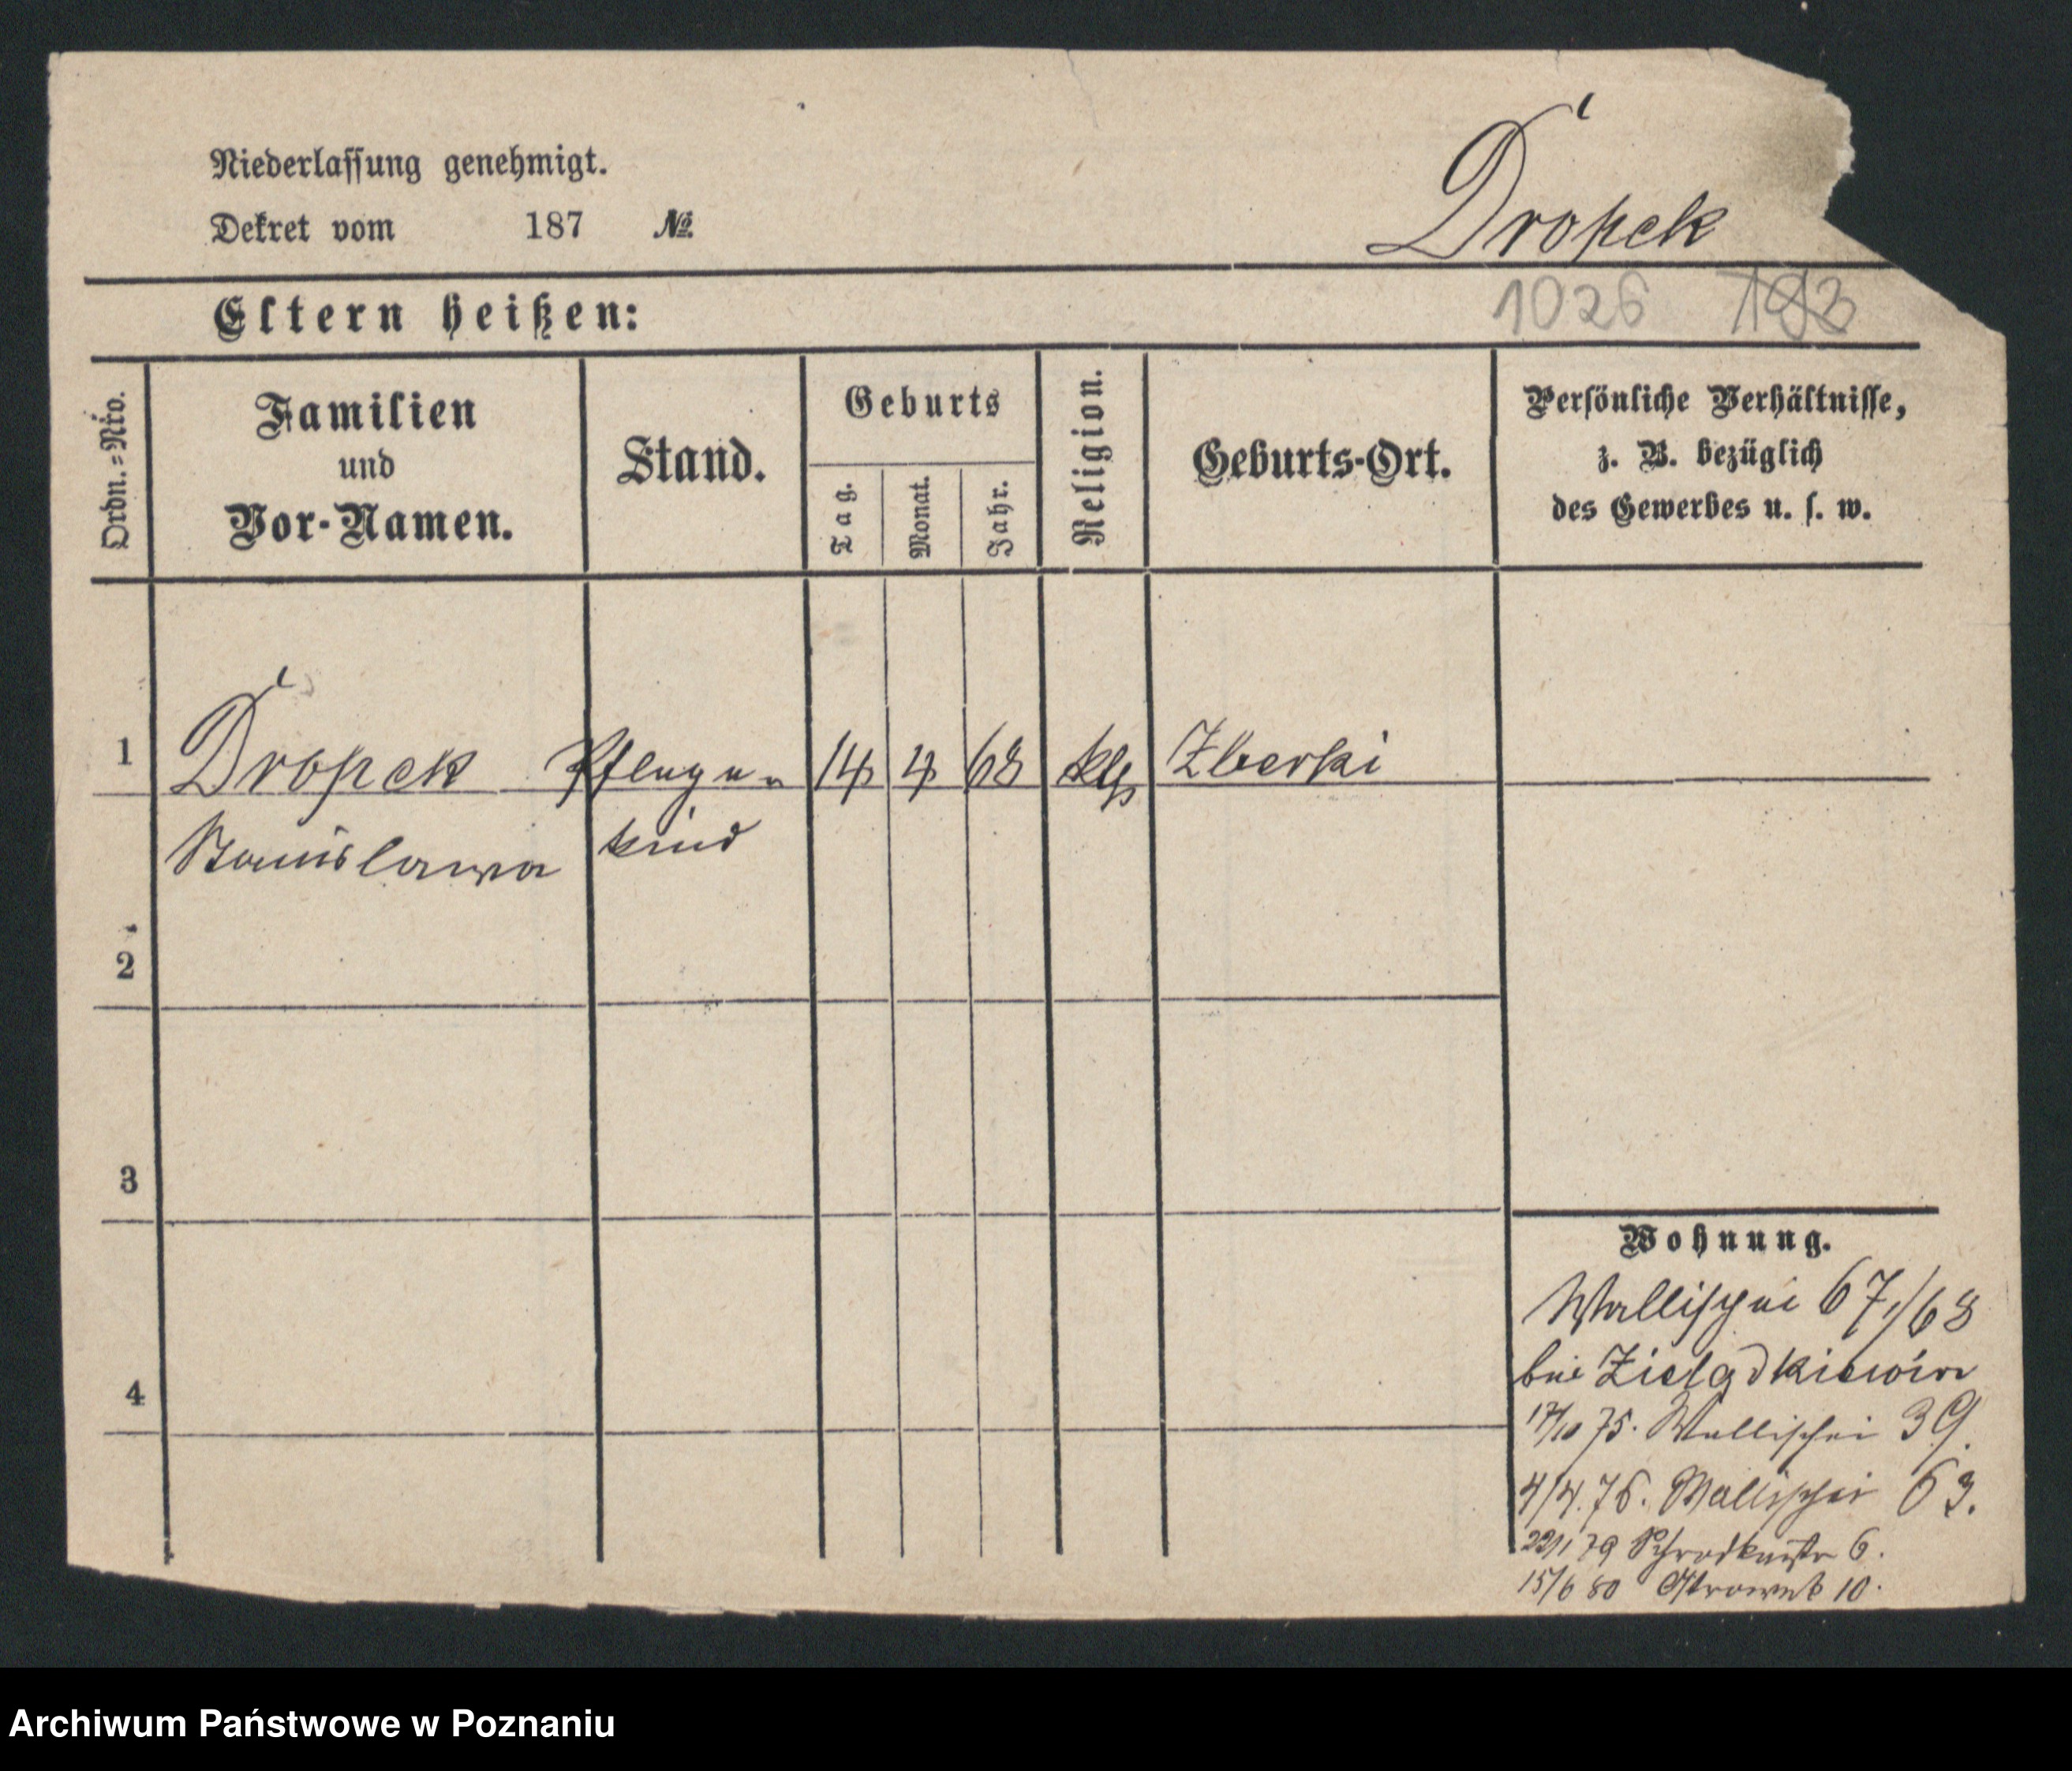 Niederlassung genehmigt.
Dekret vom 187 №
Dropek
Eltern heißen:
1026 193
Ordn.=Nro.
Familien
und
Vor-Namen.
Stand.
Geburts
Tag.
Monat.
Jahr.
Religion.
Geburts-Ort.
Persönliche Verhältnisse,
z. B. bezüglich
des Gewerbes u. s. w.
1 Dropek Pflege- 14 4 68 klg Zberki
Stanislawa kind
2
3
4
Wohnung.
Wallischei 67/68
bei
17/10 75. Wallischei 39.
4/4. 76. Wallischei 63.
22/1 79 6.
15/6 80 Ostrowek 10.
Archiwum Państwowe w Poznaniu